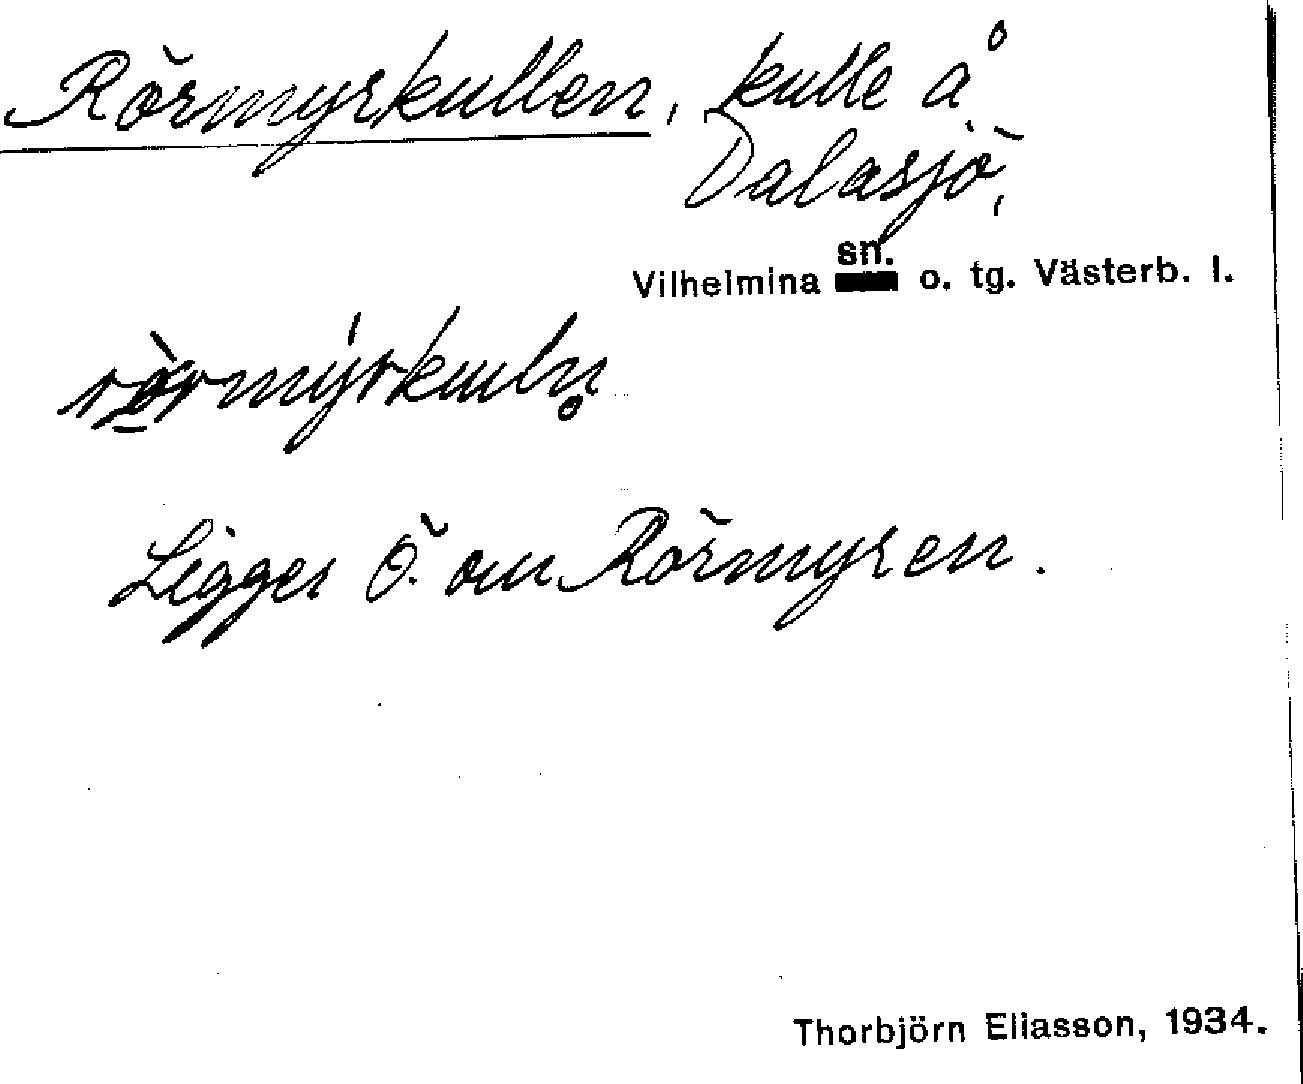 Rörmyrkullen, kulle å
Dalasjö,
sn.
Vilhelmina o. tg. Västerb. l.
Ligger Ö. om Rörmyren.
Thorbjörn Eliasson, 1934.